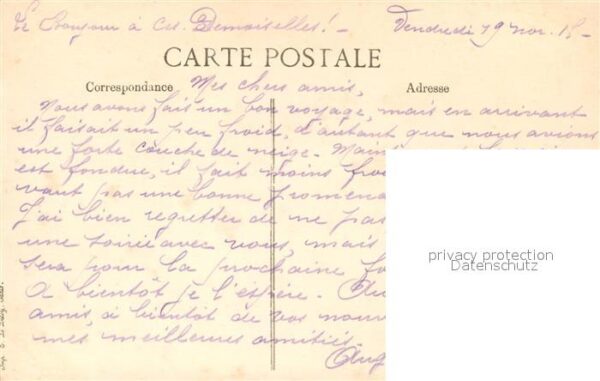 Le bonjour à ces Demoiselles! - Vendredi 19 nov. 15 -
CARTE POSTALE
Correspondance Adresse
Mes chers amis,
Nous avons fait un bon voyage, mais en arrivant
il faisait un peu froid, d'autant que nous avions
une forte couche de neige.
est fondue, il fait moins
vaut pas une bonne
J'ai bien regretter de ne pas
une soirée avec vous, mais
sera pour la prochaine
A bientôt je l'espère.
amis, à bientôt de vos
mes meilleures amitiés.
privacy protection
Datenschutz